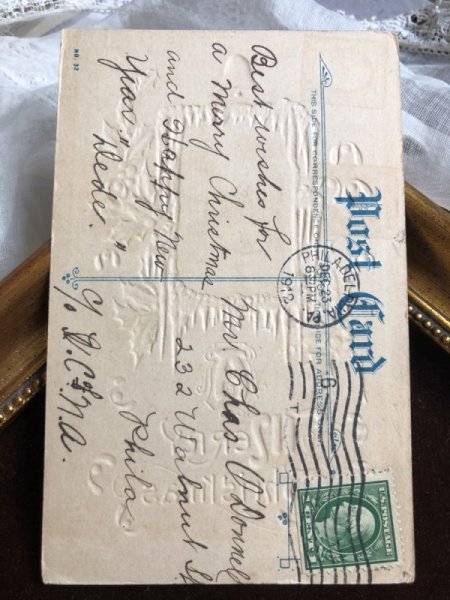 Post Card
THIS SIDE FOR CORRESPONDENCE
SIDE FOR ADDRESS ONLY
NO. 32
Best wishes for
a Merry Christmas
and Happy New
Year"
Dede."
PHILADELPHIA
DEC 23
8 PM
1912
6
Mr. Chas O'Donnell
232 Walnut St
Phila
c/o I.C. of N.A.
U.S. POSTAGE